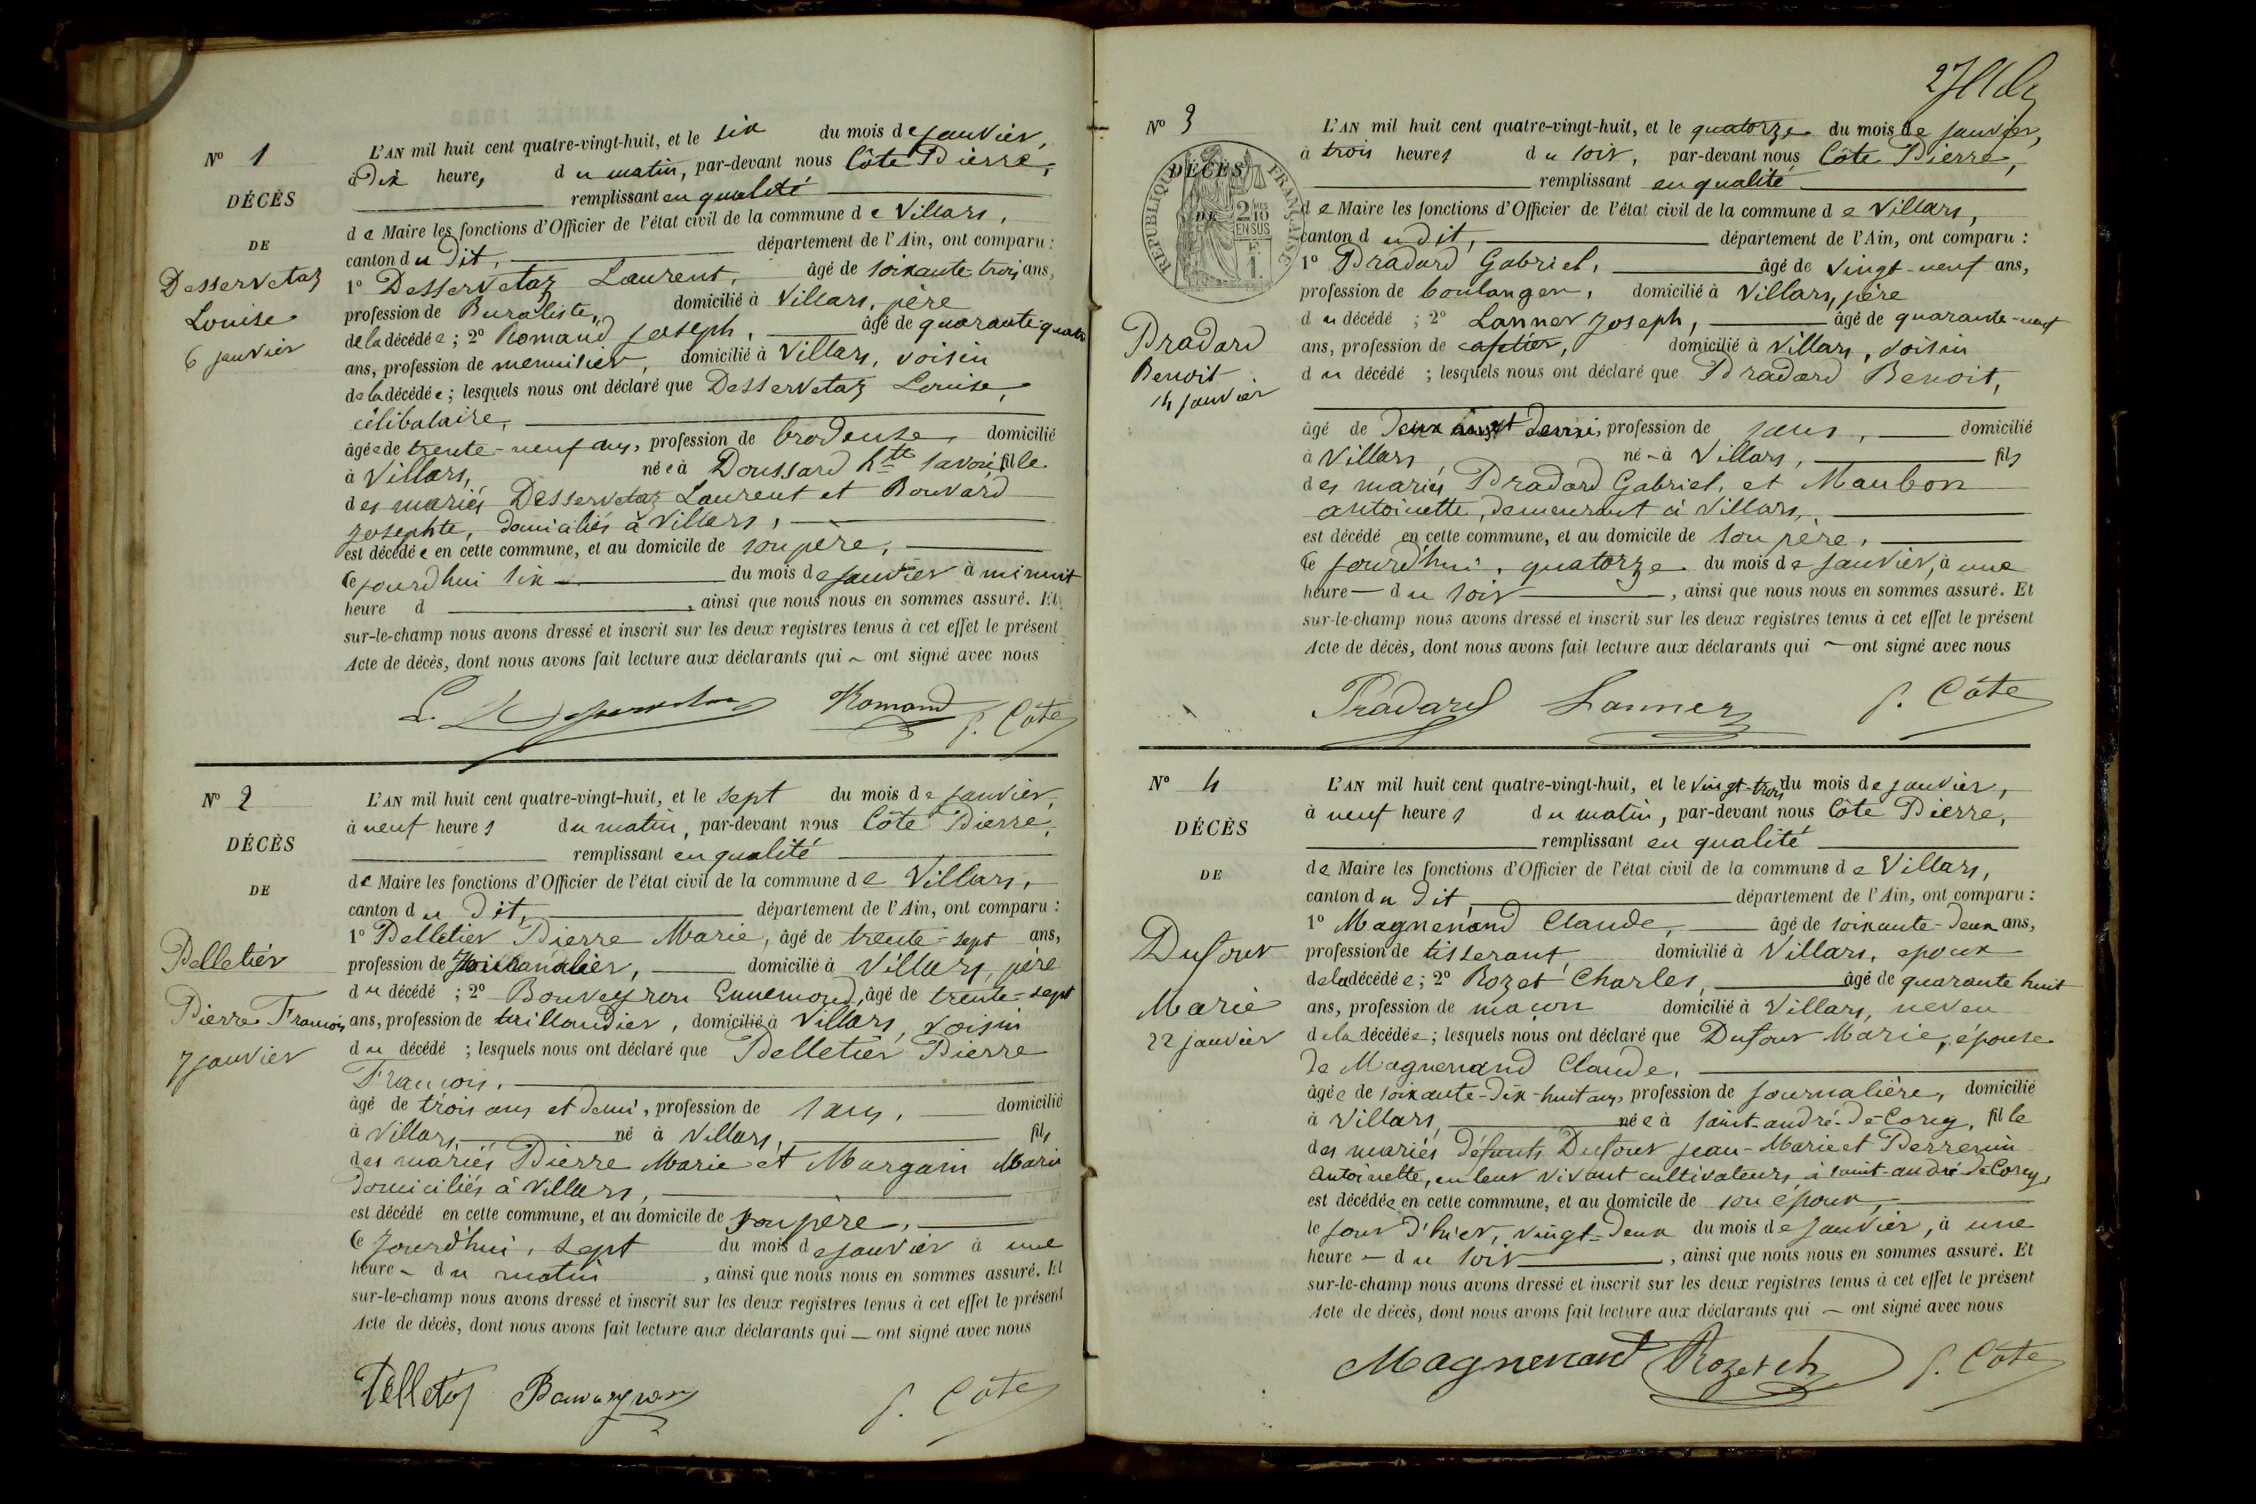 N° 1
DÉCÈS
DE
Desservetaz
Louise
6 janvier
L'AN mil huit cent quatre-vingt-huit, et le six du mois de janvier,
à Dix heures, du matin, par-devant nous Côte Pierre,
remplissant en qualité
de Maire les fonctions d'Officier de l'état civil de la commune de Villars,
canton du Dit, département de l'Ain, ont comparu :
1° Desservetaz Laurent, âgé de soixante-trois ans,
profession de Buraliste, domicilié à Villars, père
de la décédée ; 2° Romand Joseph, âgé de quarante-quatre
ans, profession de menuisier, domicilié à Villars, voisin
de la décédée ; lesquels nous ont déclaré que Desservetaz Louise,
célibataire,
âgée de trente-neuf ans, profession de brodeuse, domicilié
à Villars, née à Doussard hte Savoie, fille
des mariés Desservetaz Laurent et Bouvard
Josephte, domiciliés à Villars,
est décédée en cette commune, et au domicile de son père,
le jourdhui six du mois de janvier à minuit
heure d , ainsi que nous nous en sommes assuré. Et
sur-le-champ nous avons dressé et inscrit sur les deux registres tenus à cet effet le présent
Acte de décès, dont nous avons fait lecture aux déclarants qui ont signé avec nous
Romand P. Côte
N° 2
DÉCÈS
DE
Pelletier
Pierre François
7 janvier
L'AN mil huit cent quatre-vingt-huit, et le sept du mois de janvier,
à neuf heures du matin, par-devant nous Côte Pierre,
remplissant en qualité
de Maire les fonctions d'Officier de l'état civil de la commune de Villars,
canton du Dit, département de l'Ain, ont comparu :
1° Pelletier Pierre Marie, âgé de trente-sept ans,
profession de domicilié à Villars, père
du décédé ; 2° Bouveyron Ennemond, âgé de trente-sept
ans, profession de taillandier, domicilié à Villars, voisin
du décédé ; lesquels nous ont déclaré que Pelletier Pierre
François,
âgé de trois ans et demi, profession de sans, domicilié
à Villars, né à Villars, fils
des mariés Pierre Marie et Margain Marie
domiciliés à Villars,
est décédé en cette commune, et au domicile de son père,
le jourdhui, sept du mois de janvier à une
heure du matin , ainsi que nous nous en sommes assuré. Et
sur-le-champ nous avons dressé et inscrit sur les deux registres tenus à cet effet le présent
Acte de décès, dont nous avons fait lecture aux déclarants qui ont signé avec nous
P. Côte
2
N° 3
DÉCÈS
DE
RÉPUBLIQUE FRANÇAISE
2/10 EN SUS
1F
Pradard
Benoit
14 janvier
L'AN mil huit cent quatre-vingt-huit, et le quatorze du mois de janvier,
à trois heures du soir, par-devant nous Côte Pierre,
remplissant en qualité
de Maire les fonctions d'Officier de l'état civil de la commune de Villars,
canton du dit, département de l'Ain, ont comparu :
1° Pradard Gabriel, âgé de vingt-neuf ans,
profession de boulanger, domicilié à Villars, père
du décédé ; 2° Lanner Joseph, âgé de quarante-neuf
ans, profession de cafetier, domicilié à Villars, voisin
du décédé ; lesquels nous ont déclaré que Pradard Benoit,
âgé de deux ans et demi, profession de sans, domicilié
à Villars, né à Villars, fils
des mariés Pradard Gabriel, et Maubon
Antoinette, demeurant à Villars,
est décédé en cette commune, et au domicile de son père,
le jourd'hui, quatorze du mois de janvier, à une
heure du soir , ainsi que nous nous en sommes assuré. Et
sur-le-champ nous avons dressé et inscrit sur les deux registres tenus à cet effet le présent
Acte de décès, dont nous avons fait lecture aux déclarants qui ont signé avec nous
Pradard Lanner P. Côte
N° 4
DÉCÈS
DE
Dufour
Marie
22 janvier
L'AN mil huit cent quatre-vingt-huit, et le vingt-trois du mois de janvier,
à neuf heures du matin, par-devant nous Côte Pierre,
remplissant en qualité
de Maire les fonctions d'Officier de l'état civil de la commune de Villars,
canton du Dit, département de l'Ain, ont comparu :
1° Magnenand Claude, âgé de soixante-deux ans,
profession de tisserant, domicilié à Villars, epoux
de la décédée ; 2° Rozet Charles, âgé de quarante huit
ans, profession de maçon domicilié à Villars, neveu
de la décédée ; lesquels nous ont déclaré que Dufour Marie, épouse
de Magnenand Claude,
âgée de soixante-dix-huit ans, profession de journalière, domicilié
à Villars, née à Saint-André-de-Corcy, fille
des mariés défunts Dufour Jean-Marie et Perremin
Antoinette, en leur vivant cultivateurs à Saint-André de Corcy,
est décédée en cette commune, et au domicile de son époux,
le jour d'hier, vingt-deux du mois de janvier, à une
heure du soir , ainsi que nous nous en sommes assuré. Et
sur-le-champ nous avons dressé et inscrit sur les deux registres tenus à cet effet le présent
Acte de décès, dont nous avons fait lecture aux déclarants qui ont signé avec nous
Magnenand Rozet ch P. Côte